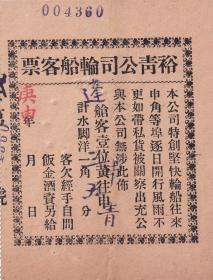 004360
裕青公司輪船客票
本公司特創堅快輪船往來
申角等埠逐日開行風雨不
更如帶私貨被關察出充公
與本公司無涉此佈
艙客壹位黄往
計水脚洋一角五分
客欠經手自問
飯金酒資另給
庚申年 月 日